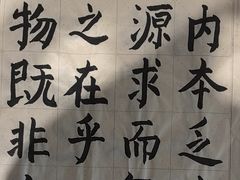 内本乏
源求而
之在乎
物既非